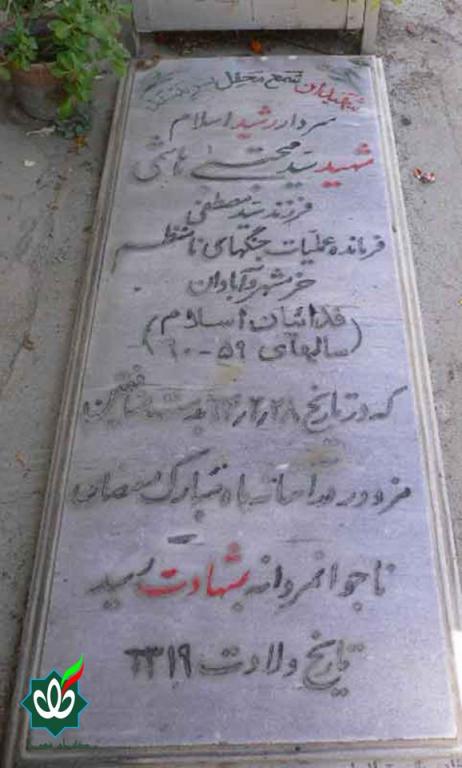 شهیدان شمع محفل بشریتند
سردار رشید اسلام
شهید سید مجتبی هاشمی
فرزند سید مصطفی
فرمانده عملیات جنگهای نامنظم
خرمشهر و آبادان
(فدائیان اسلام
سالهای ۵۹-۶۰)
که در تاریخ ۶۴٫۲٫۲۸ بدست منافقین
مزدور در ماه مبارک رمضان
ناجوانمردانه بشهادت رسید
تاریخ ولادت ۱۳۱۹